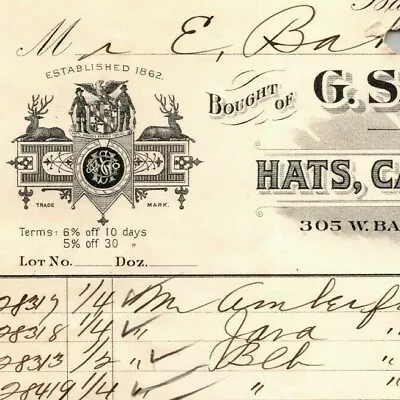 Mr E. Ba
ESTABLISHED 1862.
BOUGHT OF G. S
HATS, CA
305 W. BA
TRADE MARK.
Terms: 6% off 10 days
5% off 30 "
LOT NO. DOZ.
28317 1/4 ✓ Mn Amber
28318 1/4 ✓ " Java "
28313 1/2 " ✓ Blk "
28419 1/4 ✓ " "